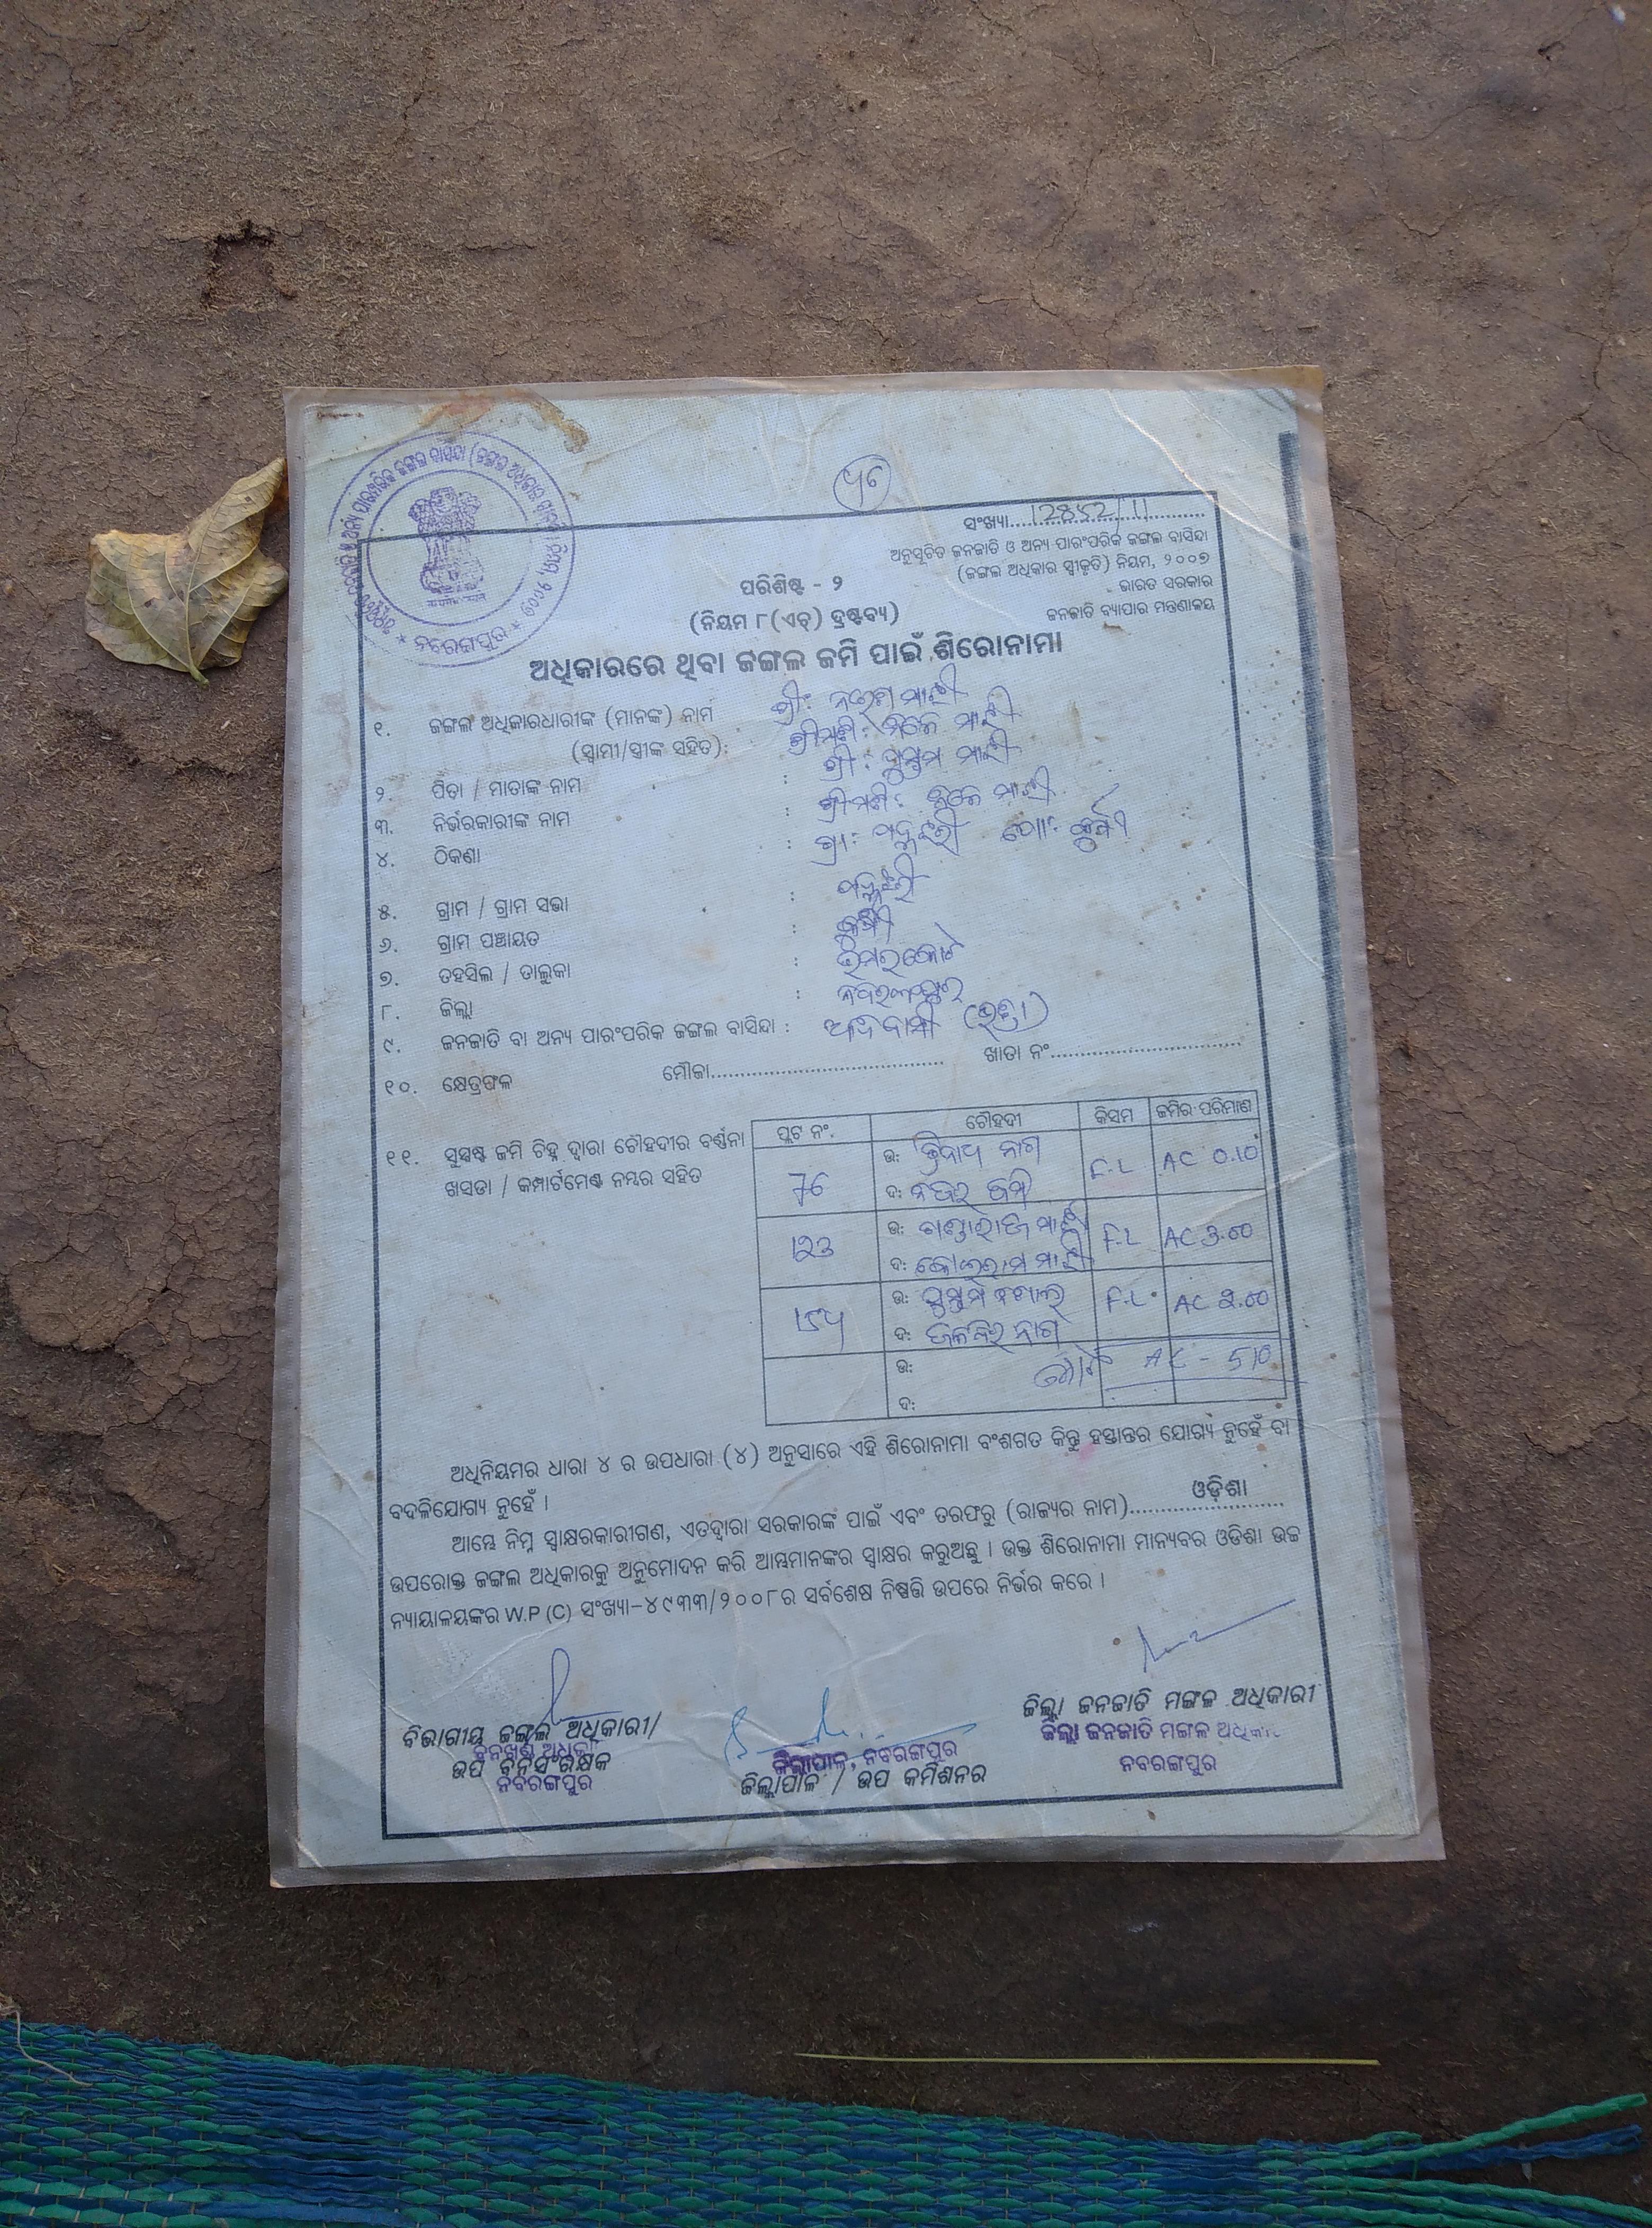 ନବରଙ୍ଗପୁର
ସଂଖ୍ୟା
ଅନୁସୂଚିତ ଜନଜାତି ଓ ଅନ୍ୟ ପାରଂପରିକ ଜଙ୍ଗଲ ବାସିନ୍ଦା
(ଜଙ୍ଗଲ ଅଧିକାର ସ୍ୱୀକୃତି) ନିୟମ, ୨୦୦୭
ଭାରତ ସରକାର
ଜନଜାତି ବ୍ୟାପାର ମନ୍ତ୍ରଣାଳୟ
ପରିଶିଷ୍ଟ - ୨
(ନିୟମ ୮(ଏଚ୍) ଦ୍ରଷ୍ଟବ୍ୟ)
ଅଧିକାରରେ ଥିବା ଜଙ୍ଗଲ ଜମି ପାଇଁ ଶିରୋନାମା
୧. ଜଙ୍ଗଲ ଅଧିକାରଧାରୀଙ୍କ (ମାନଙ୍କ) ନାମ ଶ୍ରୀ: ମାଝୀ
(ସ୍ୱାମୀ/ସ୍ତ୍ରୀଙ୍କ ସହିତ): ଶ୍ରୀମତୀ: ମାଝୀ
୨. ପିତା / ମାତାଙ୍କ ନାମ : ଶ୍ରୀ: ମାଝୀ
୩. ନିର୍ଭରକାରୀଙ୍କ ନାମ : ଶ୍ରୀମତୀ: ମାଝୀ
୪. ଠିକଣା : ଗ୍ରା: ପୋ:
୫. ଗ୍ରାମ / ଗ୍ରାମ ସଭା :
୬. ଗ୍ରାମ ପଞ୍ଚାୟତ :
୭. ତହସିଲ / ତାଲୁକା : ଉମରକୋଟ
୮. ଜିଲ୍ଲା : ନବରଙ୍ଗପୁର
୯. ଜନଜାତି ବା ଅନ୍ୟ ପାରଂପରିକ ଜଙ୍ଗଲ ବାସିନ୍ଦା : ଆଦିବାସୀ
୧୦. କ୍ଷେତ୍ରଫଳ ମୌଜା ଖାତା ନଂ
୧୧. ସୁସ୍ପଷ୍ଟ ଜମି ଚିହ୍ନ ଦ୍ୱାରା ଚୌହଦୀର ବର୍ଣ୍ଣନା
ଖସଡା / କମ୍ପାର୍ଟମେଣ୍ଟ ନମ୍ବର ସହିତ
ପ୍ଲଟ ନଂ. ଚୌହଦୀ କିସମ ଜମିର ପରିମାଣ
76 ଉ: ତ୍ରିନାଥ ନାଗ F.L AC 0.10
ଦ: ନିଜର ଜମି
123 ଉ: ମାଝୀ F.L AC 3.00
ଦ: ମାଝୀ
154 ଉ: F.L AC 2.00
ଦ: ନାଗ
ଉ: ମୋଟ AC - 510
ଦ:
ଅଧିନିୟମର ଧାରା ୪ ର ଉପଧାରା (୪) ଅନୁସାରେ ଏହି ଶିରୋନାମା ବଂଶଗତ କିନ୍ତୁ ହସ୍ତାନ୍ତର ଯୋଗ୍ୟ ନୁହେଁ ବା
ବଦଳିଯୋଗ୍ୟ ନୁହେଁ ।
ଆମ୍ଭେ ନିମ୍ନ ସ୍ୱାକ୍ଷରକାରୀଗଣ, ଏତଦ୍ୱାରା ସରକାରଙ୍କ ପାଇଁ ଏବଂ ତରଫରୁ (ରାଜ୍ୟର ନାମ) ଓଡ଼ିଶା
ଉପରୋକ୍ତ ଜଙ୍ଗଲ ଅଧିକାରକୁ ଅନୁମୋଦନ କରି ଆମ୍ଭମାନଙ୍କର ସ୍ୱାକ୍ଷର କରୁଅଛୁ । ଉକ୍ତ ଶିରୋନାମା ମାନ୍ୟବର ଓଡିଶା ଉଚ୍ଚ
ନ୍ୟାୟାଳୟଙ୍କର W.P (C) ସଂଖ୍ୟା-୪୯୩୩/୨୦୦୮ର ସର୍ବଶେଷ ନିଷ୍ପତ୍ତି ଉପରେ ନିର୍ଭର କରେ ।
ବିଭାଗୀୟ ଜଙ୍ଗଲ ଅଧିକାରୀ/
ଉପ ବନସଂରକ୍ଷକ
ନବରଙ୍ଗପୁର
ଜିଲ୍ଲାପାଳ, ନବରଙ୍ଗପୁର
ଜିଲ୍ଲାପାଳ / ଉପ କମିଶନର
ଜିଲ୍ଲା ଜନଜାତି ମଙ୍ଗଳ ଅଧିକାରୀ
ଜିଲ୍ଲା ଜନଜାତି ମଙ୍ଗଳ ଅଧିକାରୀ
ନବରଙ୍ଗପୁର